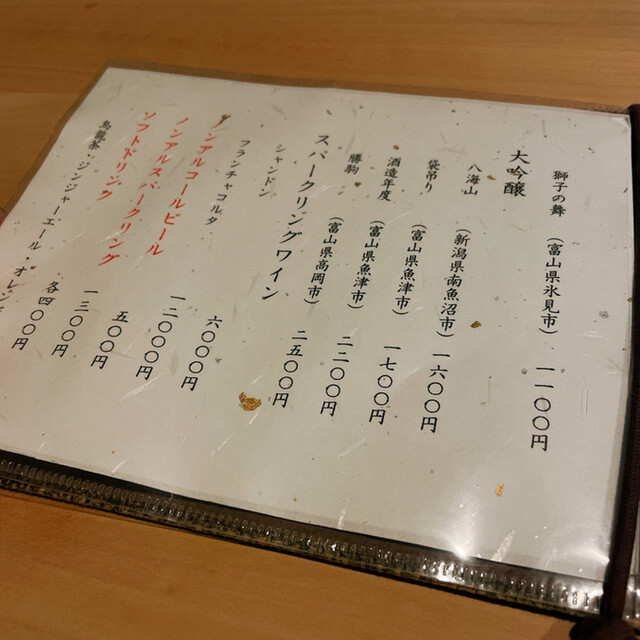 獅子の舞 （富山県氷見市） 一一〇〇円
大吟醸
八海山 （新潟県南魚沼市） 一六〇〇円
袋吊り （富山県魚津市） 一七〇〇円
酒造年度 （富山県魚津市） 二二〇〇円
勝駒 （富山県高岡市） 二五〇〇円
スパークリングワイン
シャンドン 六〇〇〇円
フランチャコルタ 一二〇〇〇円
ノンアルコールビール 五〇〇円
ノンアルスパークリング 一三〇〇円
ソフトドリンク 各四〇〇円
烏龍茶・ジンジャーエール・オレン